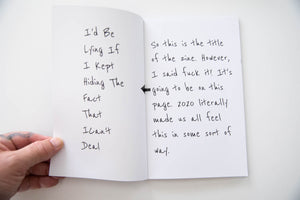 I'd Be
Lying If
I Kept
Hiding The
Fact
That
I Can't
Deal
So this is the title
of the zine. However,
I said fuck it! It's
going to be on this
page. 2020 literally
made us all feel
this in some sort of
way.